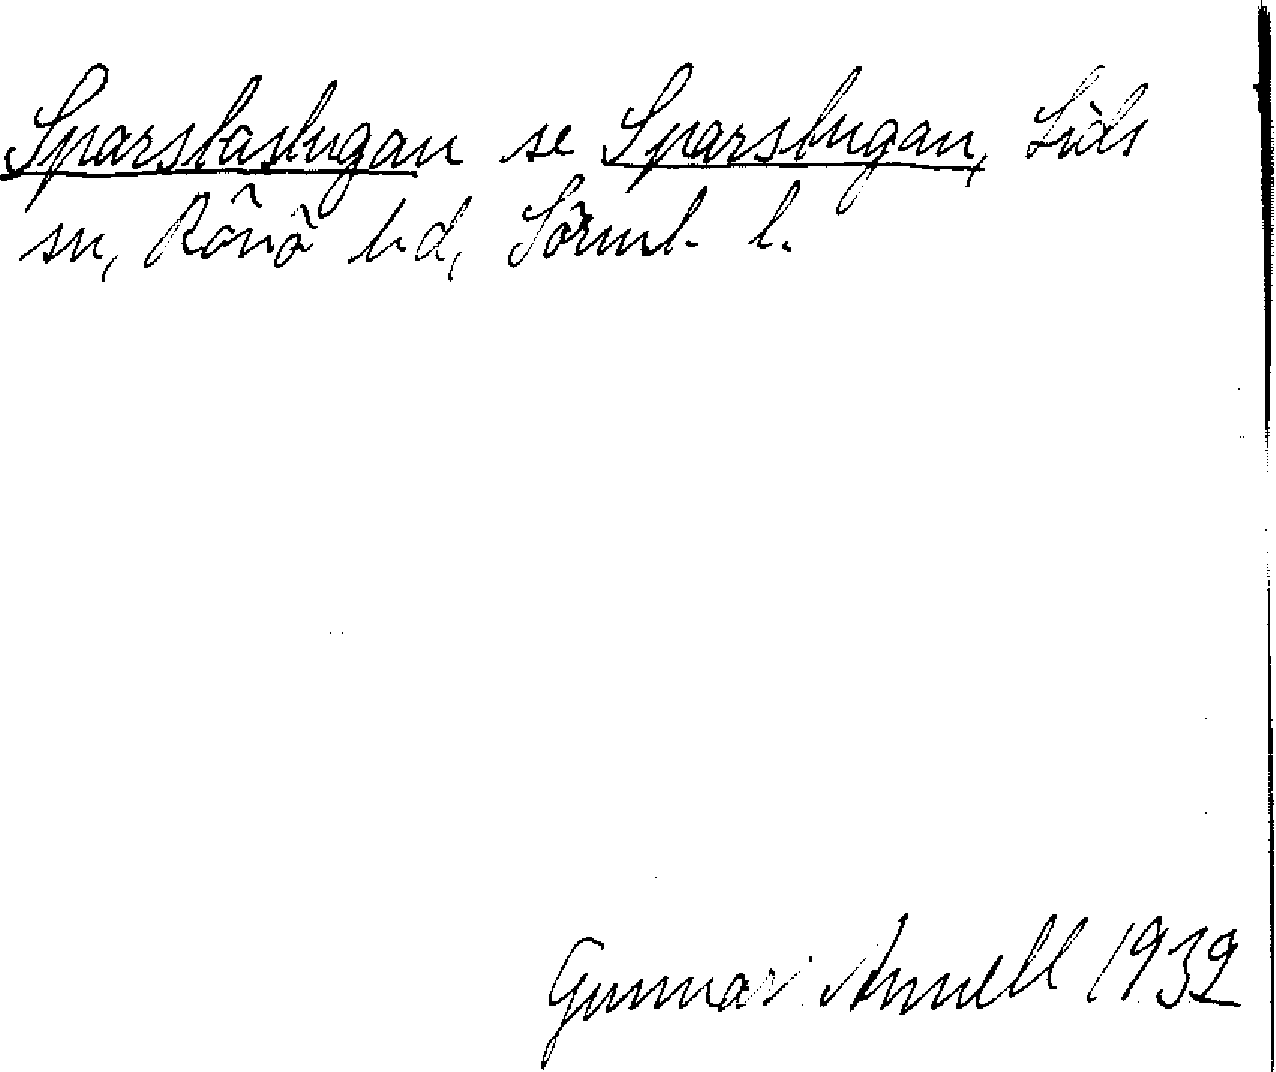 Sparslastugan se Sparstugan, Lids
sn, Rönö hd, Sörml. l.
Gunnar Annell 1932